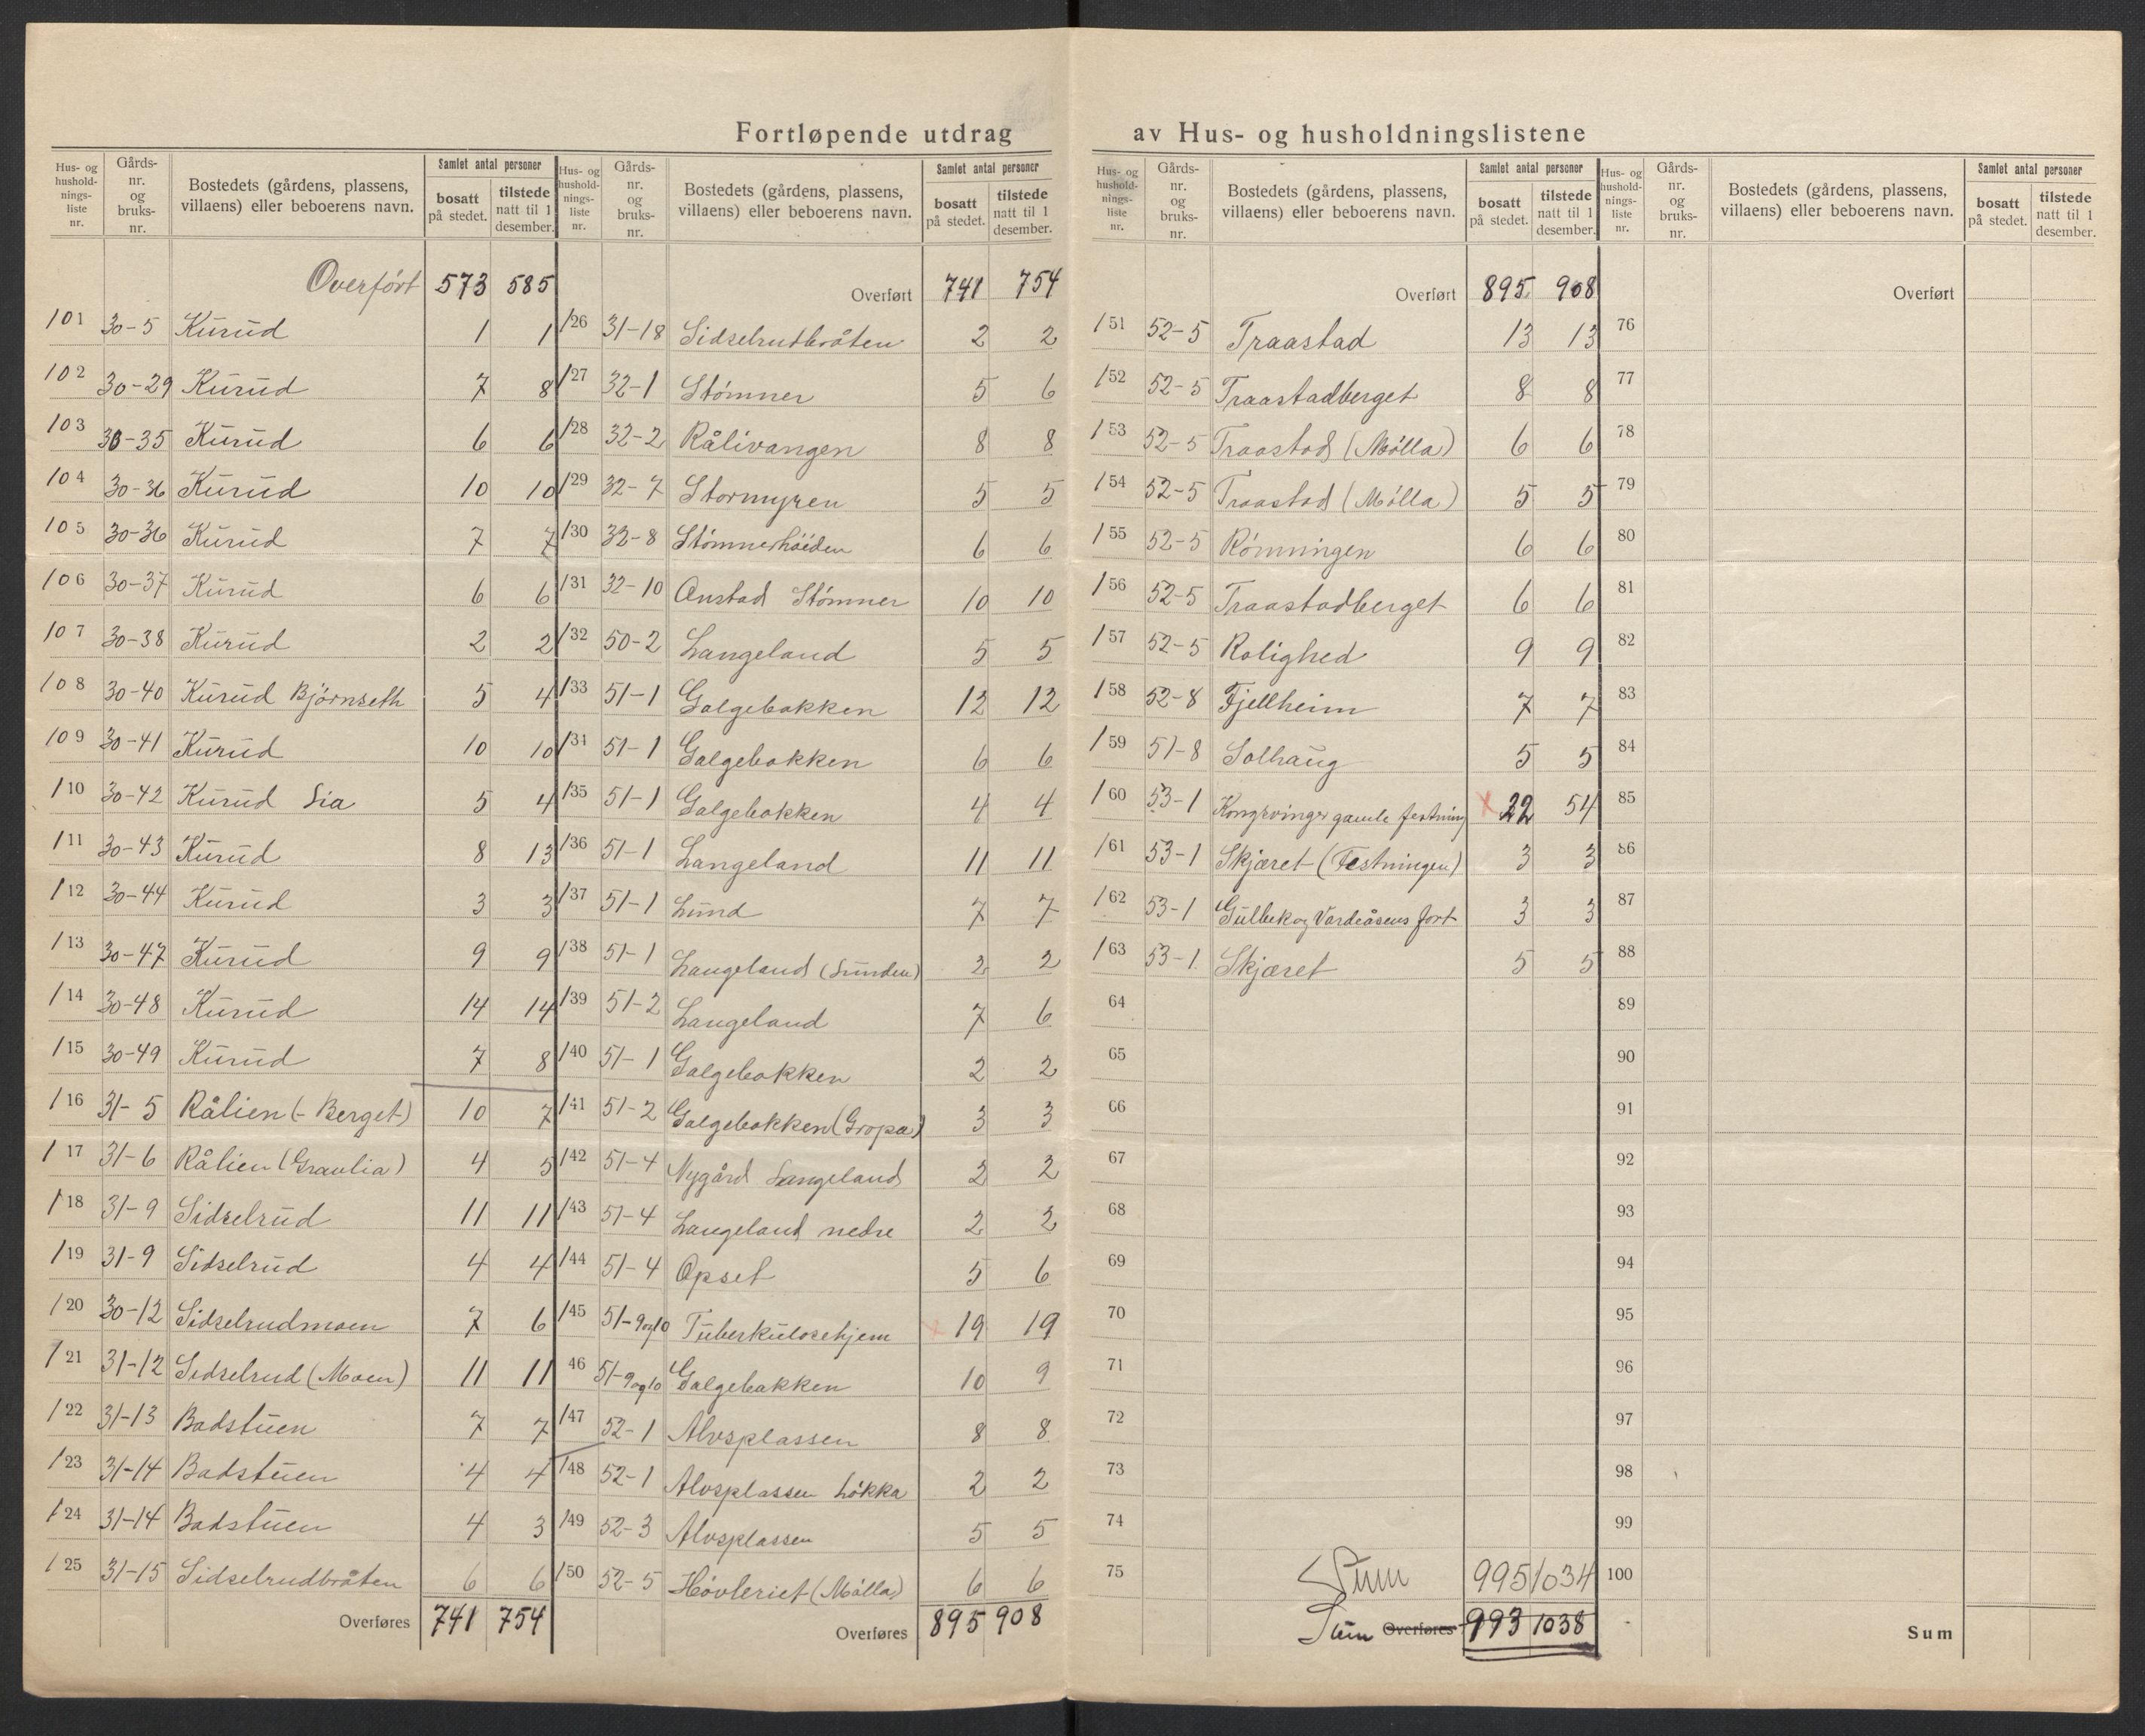 Fortløpende utdrag av Hus- og husholdningslistene
Hus- og husholdnings-liste nr. | Gårds-nr. og bruks-nr. | Bostedets (gårdens, plassens, villaens) eller beboerens navn. | Samlet antal personer | bosatt på stedet. | tilstede natt til 1 desember.
Overført 573 585
101 30-5 Kurud 1 1
102 30-29 Kurud 7 8
103 30-35 Kurud 6 6
104 30-36 Kurud 10 10
105 30-36 Kurud 7 7
106 30-37 Kurud 6 6
107 30-38 Kurud 2 2
108 30-40 Kurud Bjørnseth 5 4
109 30-41 Kurud 10 10
110 30-42 Kurud Lia 5 4
111 30-43 Kurud 8 13
112 30-44 Kurud 3 3
113 30-47 Kurud 9 9
114 30-48 Kurud 14 14
115 30-49 Kurud 7 8
116 31-5 Rålien (- Berget) 10 7
117 31-6 Rålien (Graulia) 4 5
118 31-9 Sidselrud 11 11
119 31-9 Sidselrud 4 4
120 30-12 Sidselrudmoen 7 6
121 31-12 Sidselrud (Moen) 11 11
122 31-13 Badstuen 7 7
123 31-14 Badstuen 4 4
124 31-14 Badstuen 4 3
125 31-15 Sidselrudbråten 6 6
Overføres 741 754
Hus- og husholdnings-liste nr. | Gårds-nr. og bruks-nr. | Bostedets (gårdens, plassens, villaens) eller beboerens navn. | Samlet antal personer | bosatt på stedet. | tilstede natt til 1 desember.
Overført 741 754
126 31-18 Sidselrudbråten 2 2
127 32-1 Stömner 5 6
128 32-2 Rålivangen 8 8
129 32-7 Stormyren 5 5
130 32-8 Stömnerhöiden 6 6
131 32-10 Anstad Stömner 10 10
132 50-2 Langeland 5 5
133 51-1 Galgebakken 12 12
134 51-1 Galgebakken 6 6
135 51-1 Galgebakken 4 4
136 51-1 Langeland 11 11
137 51-1 Lund 7 7
138 51-1 Langeland (Lunden) 2 2
139 51-2 Langeland 7 6
140 51-1 Galgebakken 2 2
141 51-2 Galgebakken (Gropa) 3 3
142 51-4 Nygård Langeland 2 2
143 51-4 Langeland nedre 2 2
144 51-4 Opset 5 6
145 51-9og10 Tuberkulosehjem x 19 19
46 51-9og10 Galgebakken 10 9
147 52-1 Alvsplassen 8 8
148 52-1 Alvsplassen Lökka 2 2
149 52-3 Alvsplassen 5 5
150 52-5 Hövleriet (Mölla) 6 6
Overføres 895 908
Hus- og husholdnings-liste nr. | Gårds-nr. og bruks-nr. | Bostedets (gårdens, plassens, villaens) eller beboerens navn. | Samlet antal personer | bosatt på stedet. | tilstede natt til 1 desember.
Overført 895 908
151 52-5 Traastad 13 13
152 52-5 Traastadberget 8 8
153 52-5 Traastad (Mölla) 6 6
154 52-5 Traastad (Mölla) 5 5
155 52-5 Römningen 6 6
156 52-5 Traastadberget 6 6
157 52-5 Rolighed 9 9
158 52-8 Fjellheim 7 7
159 51-8 Solhaug 5 5
160 53-1 Kongsvinger gamle festning x 22 54
161 53-1 Skjæret (Festningen) 3 3
162 53-1 Gullbekog Vardeåsens fort 3 3
163 53-1 Skjæret 5 5
64
65
66
67
68
69
70
71
72
73
74
75 Sum 995 1034
Sum Overføres 993 1038
Hus- og husholdnings-liste nr. | Gårds-nr. og bruks-nr. | Bostedets (gårdens, plassens, villaens) eller beboerens navn. | Samlet antal personer | bosatt på stedet. | tilstede natt til 1 desember.
Overført
76
77
78
79
80
81
82
83
84
85
86
87
88
89
90
91
92
93
94
95
96
97
98
99
100
Sum